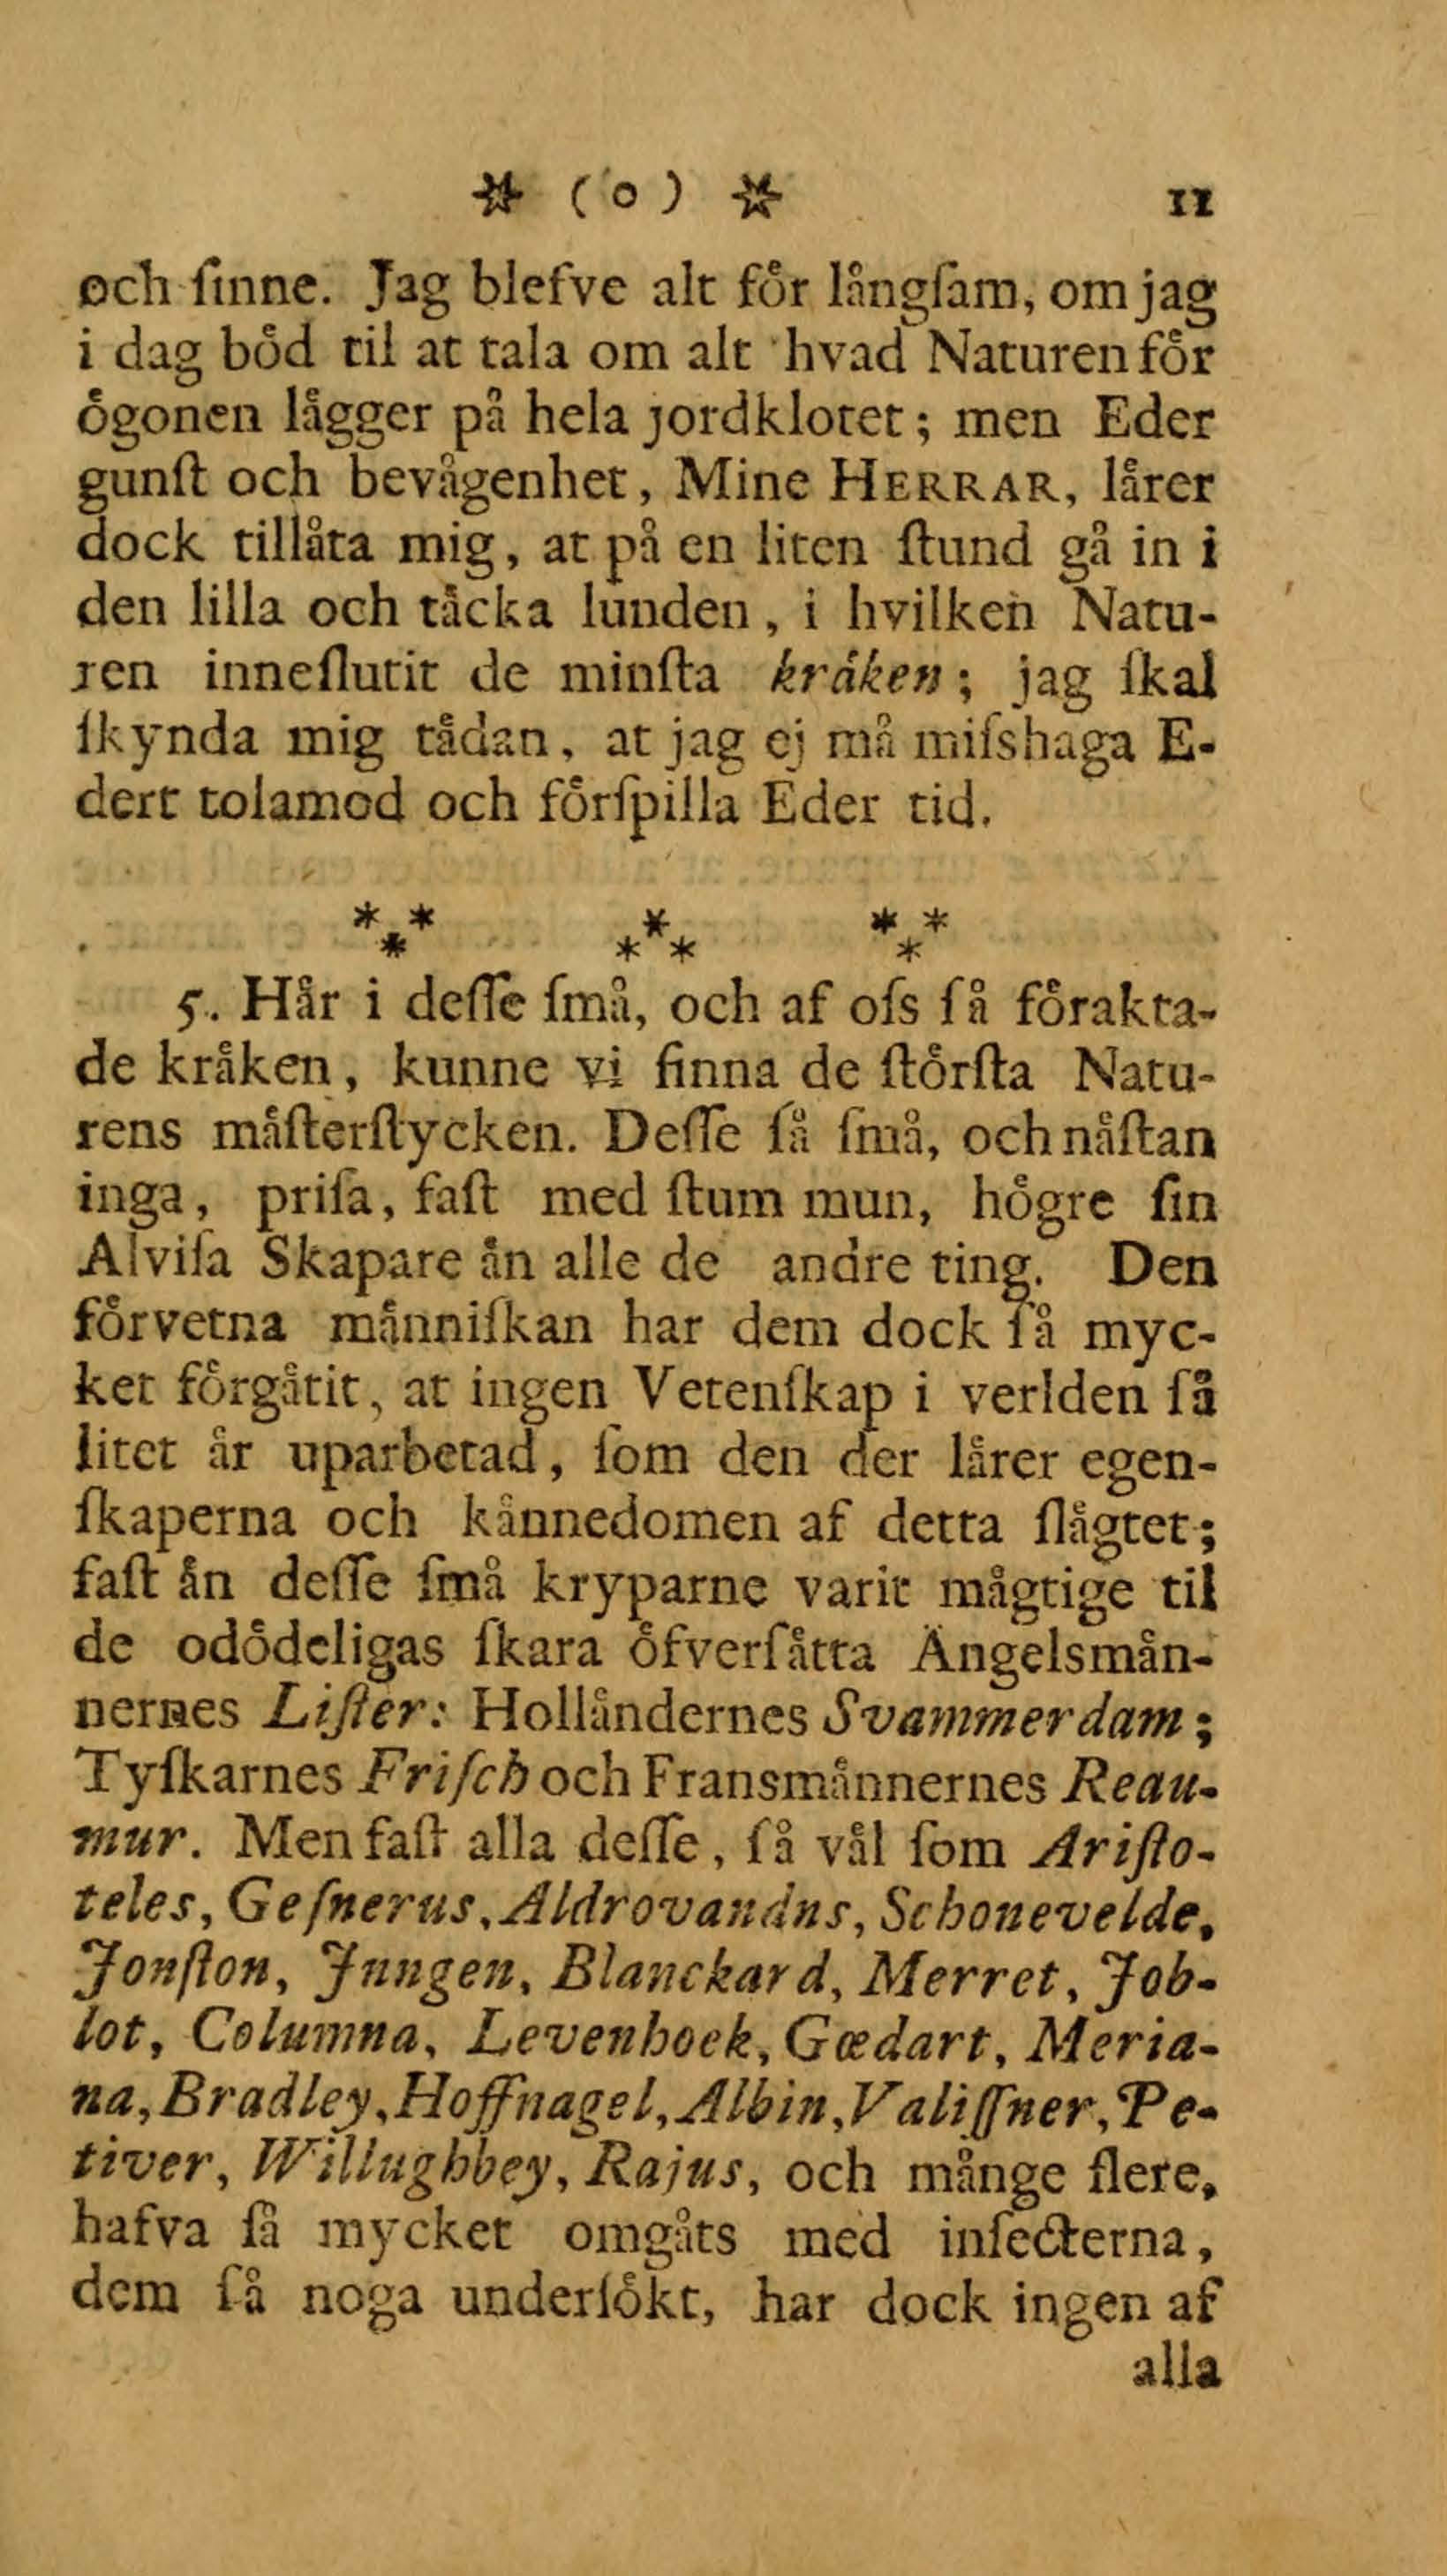 * ( o ) * 11
och ſinne. Jag blefve alt fŏr långſam, om jag
i dag bŏd til at tala om alt hvad Naturen fŏr
ŏgonen lågger på hela jordklotet; men Eder
gunſt och bevågenhet, Mine HERRAR, lårer
dock tillåta mig, at på en liten ſtund gå in i
den lilla och tåcka lunden, i hvilken Natu-
ren inneſlutit de minſta kråken; jag ſkal
ſkynda mig tådan, at jag ej må miſshaga E-
dert tolamod och fŏrſpilla Eder tid.
* * * * * * * * *
5. Hår i deſſe ſmå, och af oſs ſå fŏrakta-
de kråken, kunne vi finna de ſtŏrſta Natu-
rens måſterſtycken. Deſſe ſå ſmå, och nåſtan
inga, priſa, faſt med ſtum mun, hŏgre ſin
Alviſa Skapare ån alle de andre ting. Den
fŏrvetna månniſkan har dem dock ſå myc-
ket fŏrgåtit, at ingen Vetenſkap i verlden ſå
litet år uparbetad, ſom den der lårer egen-
ſkaperna och kånnedomen af detta ſlågtet;
faſt ån deſſe ſmå kryparne varit mågtige til
de odŏdeligas ſkara ŏfverſåtta Ängelsmån-
nernes Liſter: Hollåndernes Svammerdam;
Tyſkarnes Friſch och Fransmånnernes Reau-
mur. Men faſt alla deſſe, ſå vål ſom Ariſto-
teles, Geſnerus, Aldrovandns, Schonevelde,
Jonſton, Jungen, Blanckard, Merret, Job-
lot, Columna, Levenhoek, Gœdart, Meria-
na, Bradley, Hoffnagel, Albin, Valiſſner, Pe-
tiver, Willughbey, Rajus, och månge flere,
hafva ſå mycket omgåts med inſecterna,
dem ſå noga underſŏkt, har dock ingen af
alla